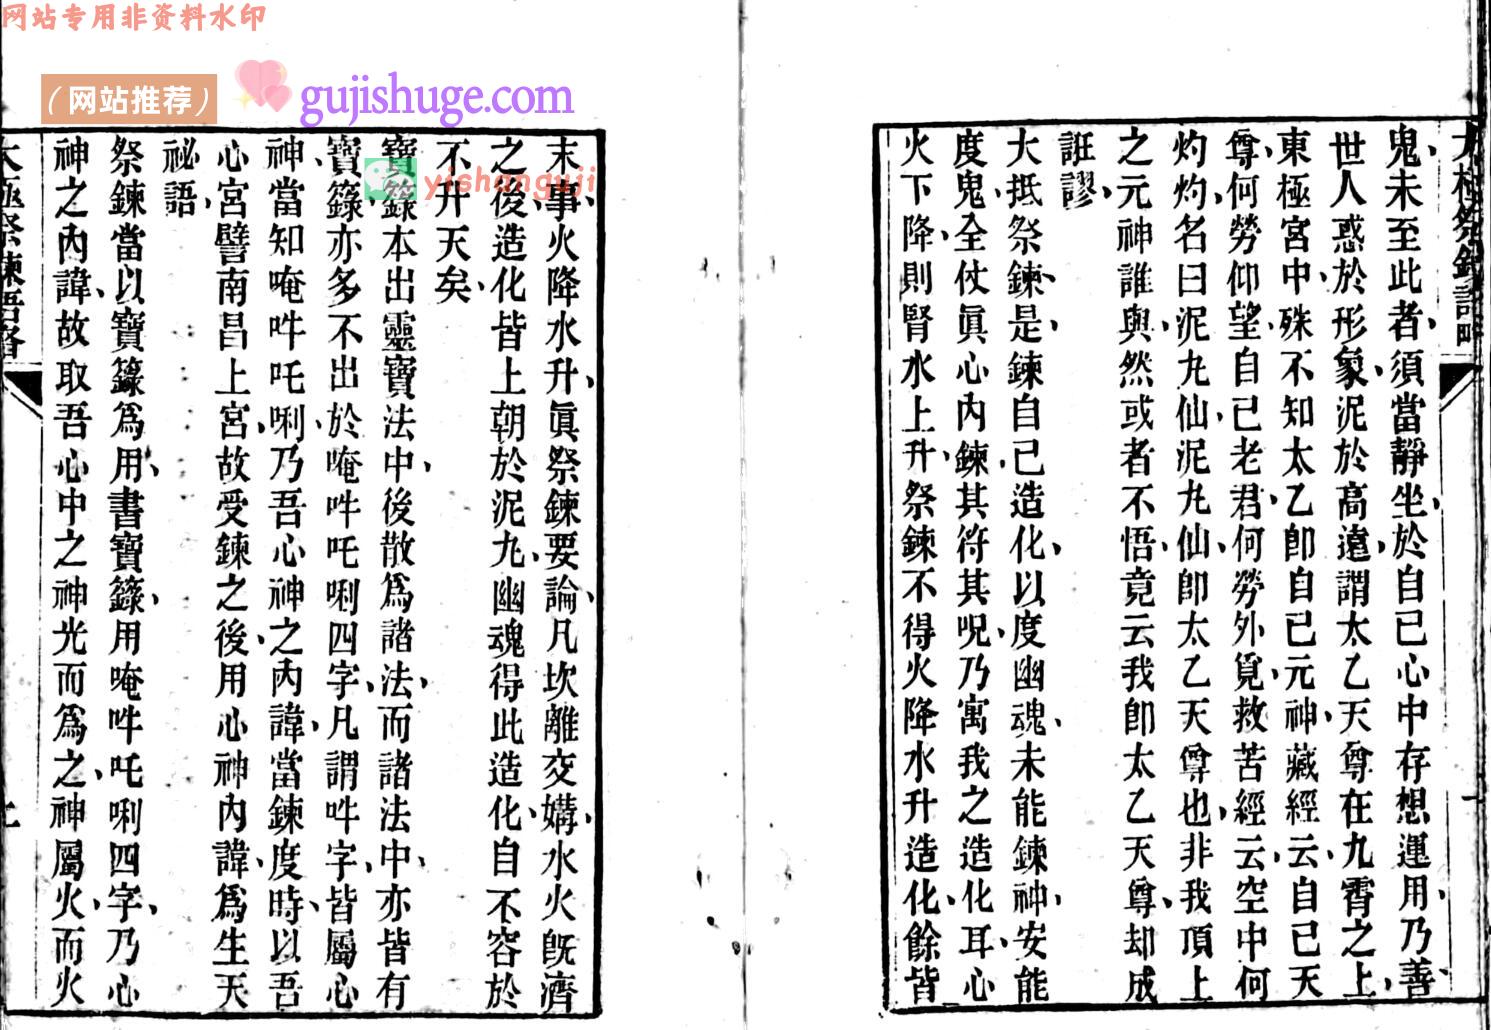 网站专用非资料水印
（网站推荐）
gujishuge.com
yishanguji
鬼未至此者須當靜坐於自己心中存想運用乃善
世人惑於形象泥於高遠謂太乙天尊在九霄之上
東極宮中殊不知太乙即自己元神藏經云自己天
尊何勞仰望自己老君何勞外覓救苦經云空中何
灼灼名曰泥九仙泥九仙即太乙天尊也非我頂上
之元神誰與然或者不悟竟云我即太乙天尊却成
誑謬
大抵祭鍊是鍊自己造化以度幽魂未能鍊神安能
度鬼全仗眞心內鍊其符其呪乃寓我之造化耳心
火下降則腎水上升祭鍊不得火降水升造化餘皆
末事火降水升眞祭鍊要論凡坎離交媾水火既濟
之後造化皆上朝於泥九幽魂得此造化自不容於
不升天矣
寶籙本出靈寶法中後散爲諸法而諸法中亦皆有
寶籙亦多不出於唵吽吒唎四字凡謂吽字皆屬心
神當知唵吽吒唎乃吾心神之內諱當鍊度時以吾
心宮譬南昌上宮故受鍊之後用心神內諱爲生天
祕語
祭鍊當以寶籙爲用書寶籙用唵吽吒唎四字乃心
神之內諱故取吾心中之神光而爲之神屬火而火